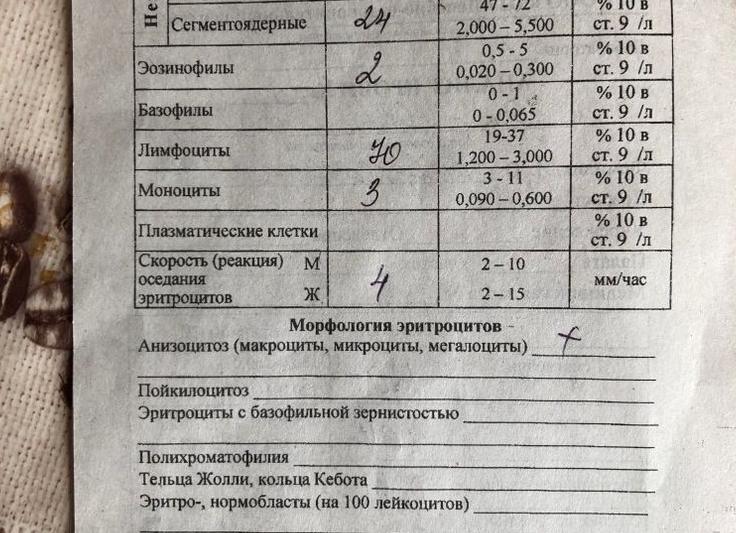 Не
47 - 72 % 10 в
Сегментоядерные 24 2,000 – 5,500 ст. 9 /л
0,5 - 5 % 10 в
Эозинофилы 2 0,020 – 0,300 ст. 9 /л
0 - 1 % 10 в
Базофилы 0 - 0,065 ст. 9 /л
19-37 % 10 в
Лимфоциты 70 1,200 – 3,000 ст. 9 /л
3 - 11 % 10 в
Моноциты 3 0,090 – 0,600 ст. 9 /л
% 10 в
Плазматические клетки ст. 9 /л
Скорость (реакция) М 2 – 10
оседания 4 мм/час
эритроцитов Ж 2 – 15
Морфология эритроцитов
Анизоцитоз (макроциты, микроциты, мегалоциты) +
Пойкилоцитоз
Эритроциты с базофильной зернистостью
Полихроматофилия
Тельца Жолли, кольца Кебота
Эритро-, нормобласты (на 100 лейкоцитов)